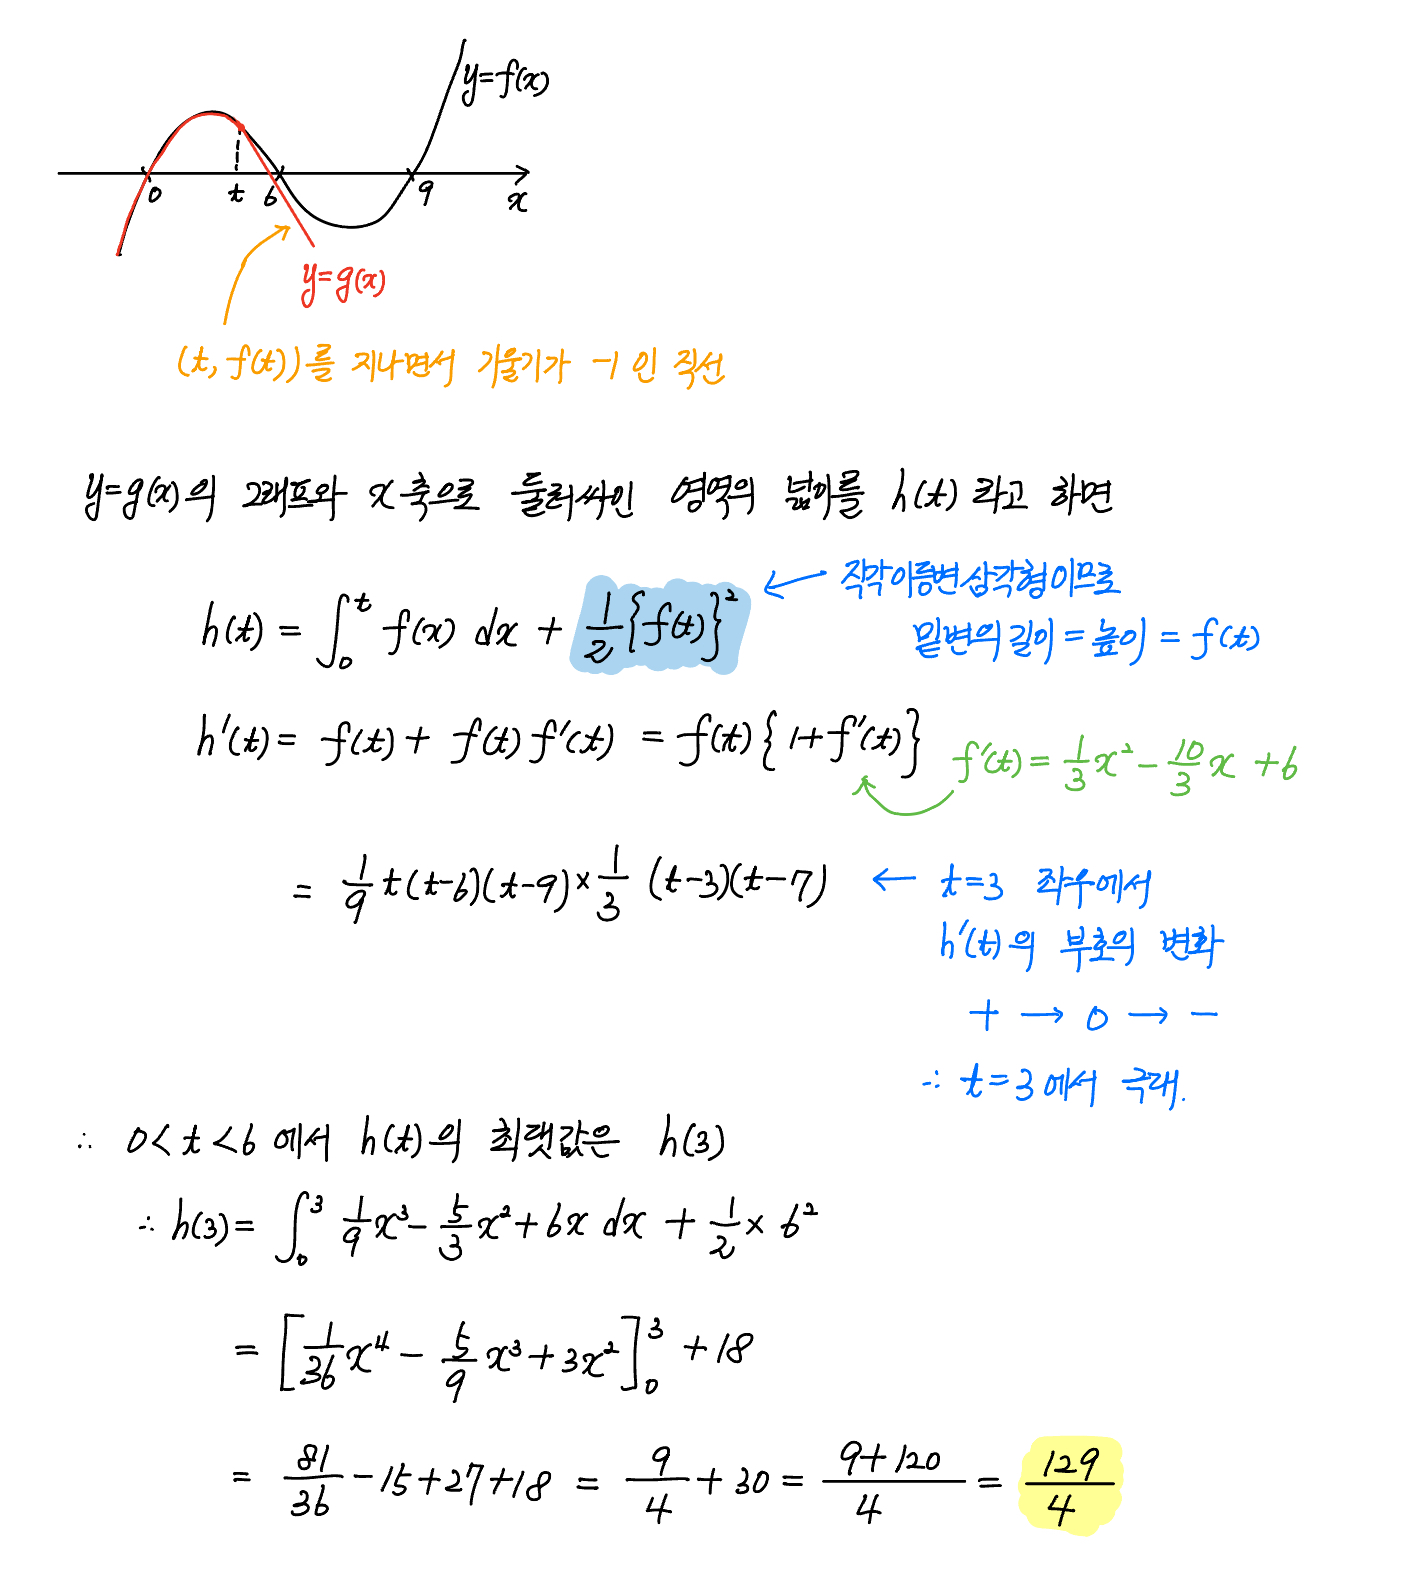 y=f(x)
0 t 6 9 x
y=g(x)
(t, f(t))를 지나면서 기울기가 -1인 직선
y=g(x)의 그래프와 x축으로 둘러싸인 영역의 넓이를 h(t)라고 하면
h(t) = ∫₀ᵗ f(x) dx + 1/2 {f(t)}² ← 직각이등변삼각형이므로
밑변의 길이 = 높이 = f(t)
h'(t) = f(t) + f(t) f'(t) = f(t) {1+f'(t)}
f'(t) = 1/3 x² - 10/3 x + 6
= 1/9 t(t-6)(t-9) × 1/3 (t-3)(t-7) ← t=3 좌우에서
h'(t)의 부호의 변화
+ → 0 → -
∴ t=3에서 극대.
∴ 0<t<6에서 h(t)의 최댓값은 h(3)
∴ h(3) = ∫₀³ 1/9 x³ - 5/3 x² + 6x dx + 1/2 × 6²
= [1/36 x⁴ - 5/9 x³ + 3x²]₀³ + 18
= 81/36 - 15 + 27 + 18 = 9/4 + 30 = (9+120)/4 = 129/4